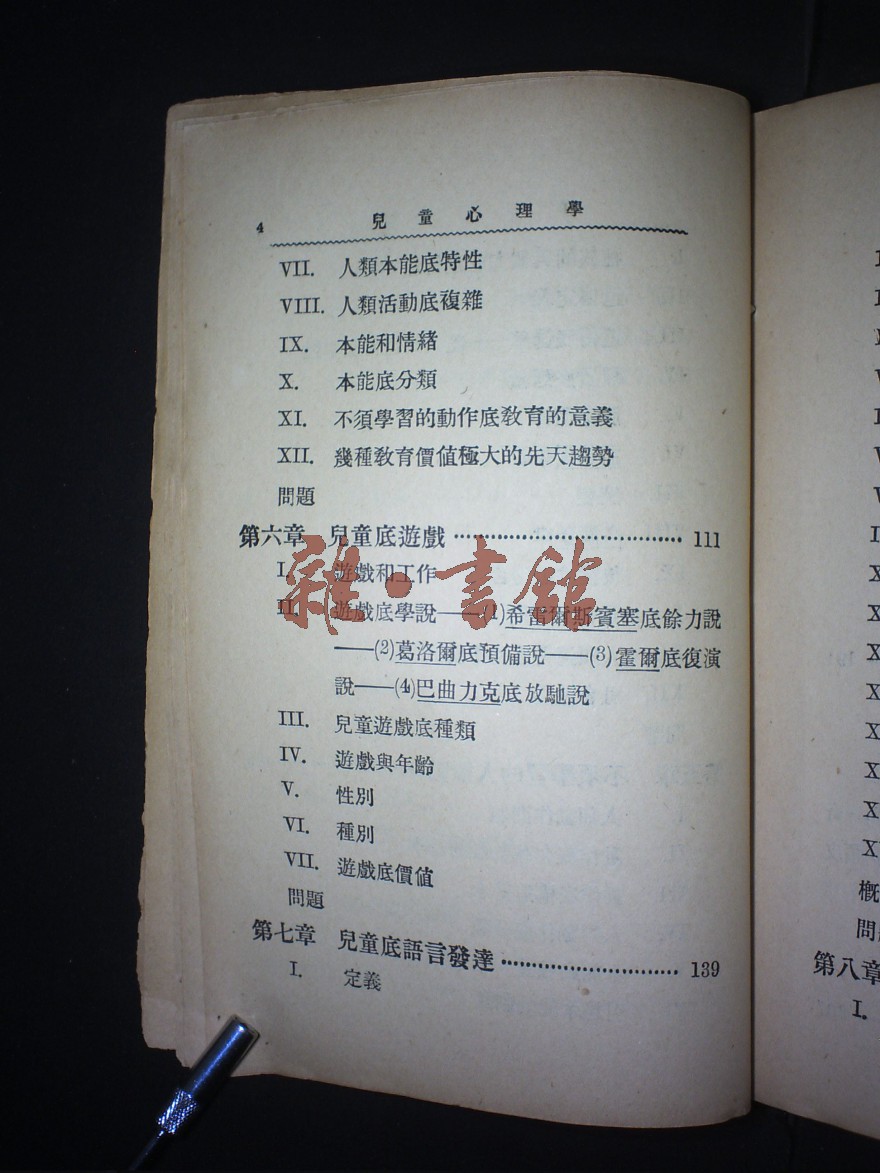 4 兒童心理學
VII. 人類本能底特性
VIII. 人類活動底複雜
IX. 本能和情緒
X. 本能底分類
XI. 不須學習的動作底敎育的意義
XII. 幾種敎育價值極大的先天趨勢
問題
第六章 兒童底遊戲 ……………………………… 111
I. 遊戲和工作
II. 遊戲底學說——(1)希雷爾斯賓塞底餘力說
——(2)葛洛爾底預備說——(3)霍爾底復演
說——(4)巴曲力克底放馳說
III. 兒童遊戲底種類
IV. 遊戲與年齡
V. 性別
VI. 種別
VII. 遊戲底價值
問題
第七章 兒童底語言發達 ……………………… 139
I. 定義
雜·書館
概
問
第八章
I.